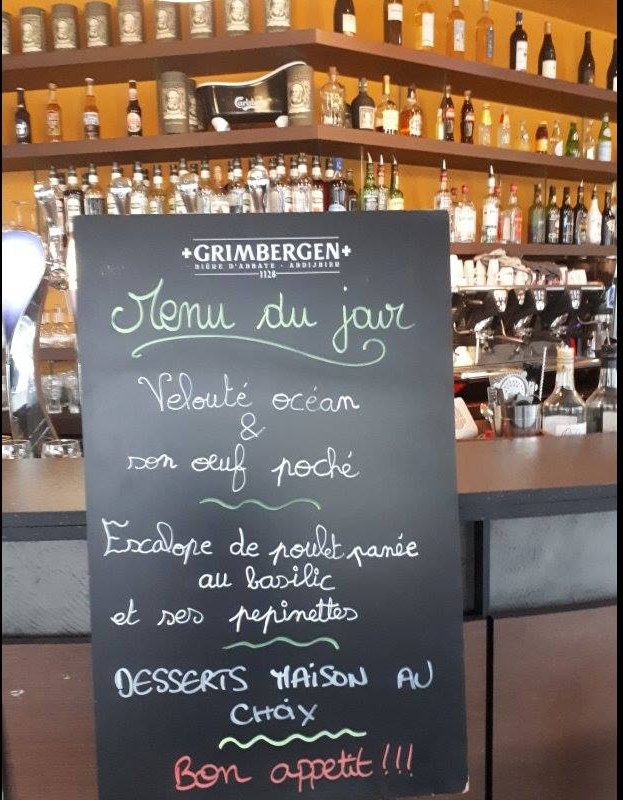 +GRIMBERGEN+
BIÈRE D'ABBAYE - ABDIJBIER
1128
Menu du jour
Velouté océan
&
son œuf poché
Escalope de poulet panée
au basilic
et ses pepinettes
DESSERTS MAISON AU
CHOIX
Bon appetit !!!
Carlsberg